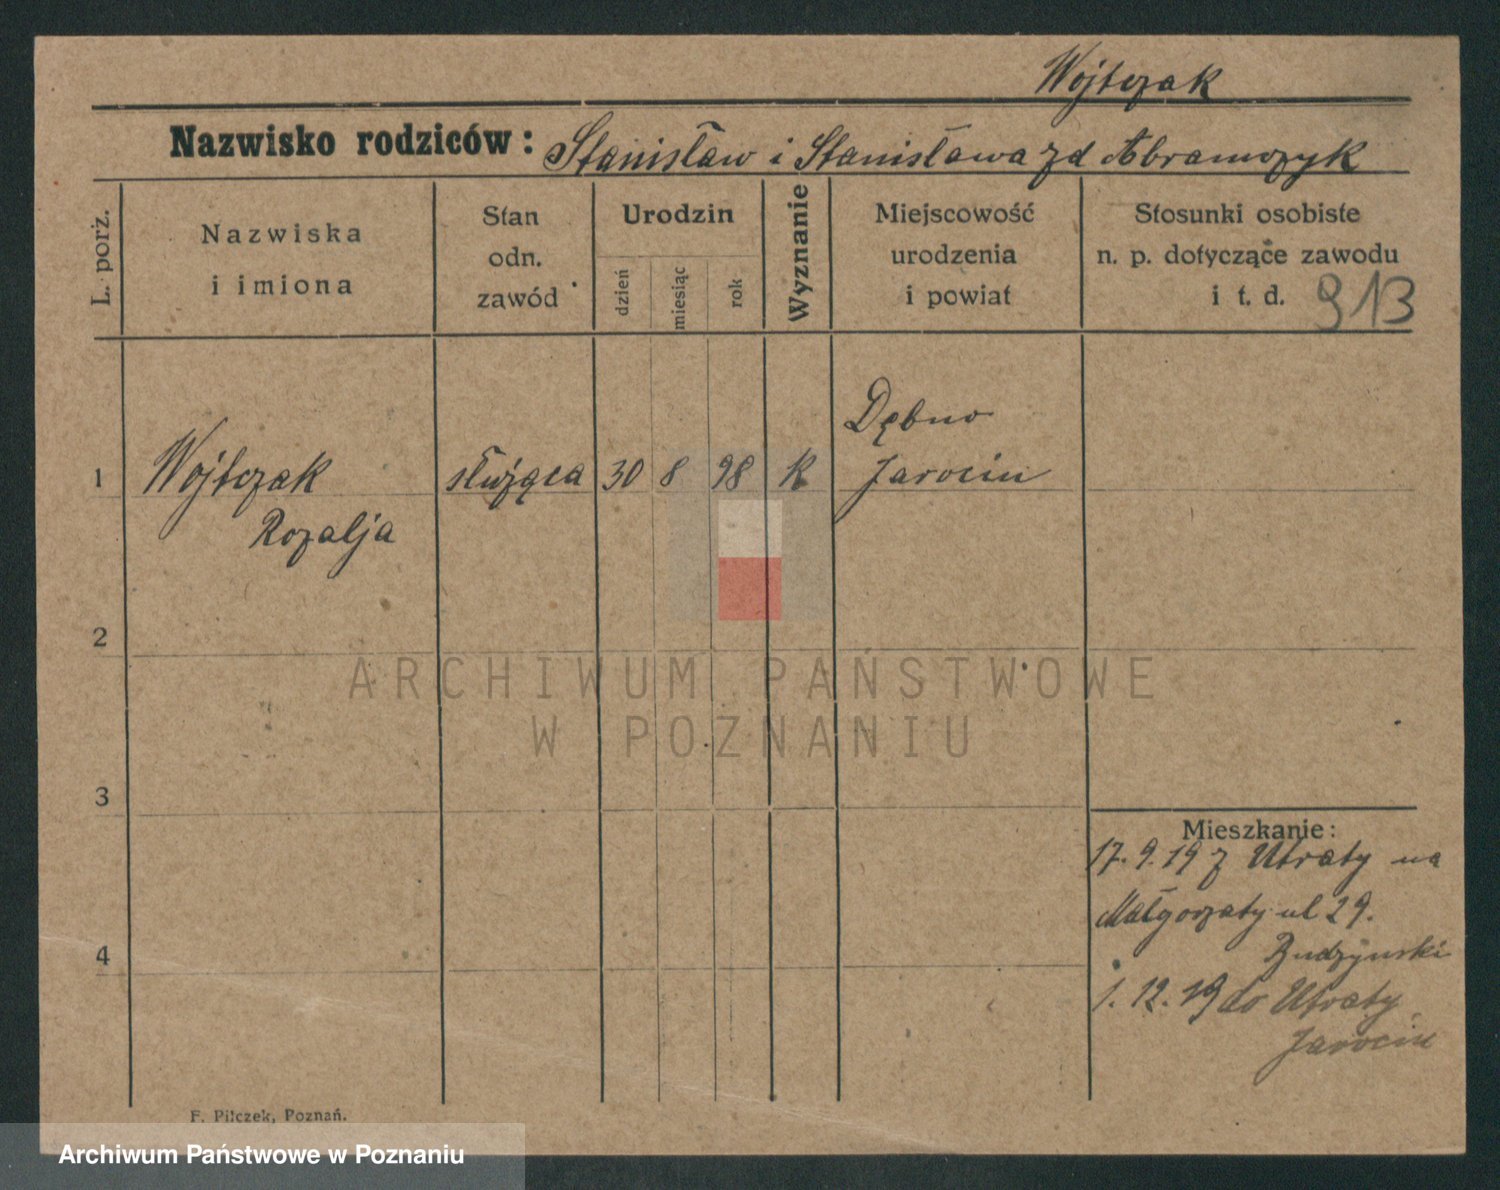 Wojtczak
Nazwisko rodziców: Stanisław i Stanisława zd Abramczyk
L. porż.
Nazwiska
i imiona
Stan
odn.
zawód
Urodzin
dzień
miesiąc
rok
Wyznanie
Miejscowość
urodzenia
i powiat
Stosunki osobiste
n. p. dotyczące zawodu
i t. d. 913
1 Wojtczak służąca 30 8 98 k Dębno
Jarocin
Rozalja
2
ARCHIWUM PAŃSTWOWE
W POZNANIU
3
Mieszkanie:
17. 9. 19 z Utraty na
Małgorzaty ul 29.
Budzyński
4
1. 12. 19 do Utraty
Jarocin
F. Pilczek, Poznań.
Archiwum Państwowe w Poznaniu